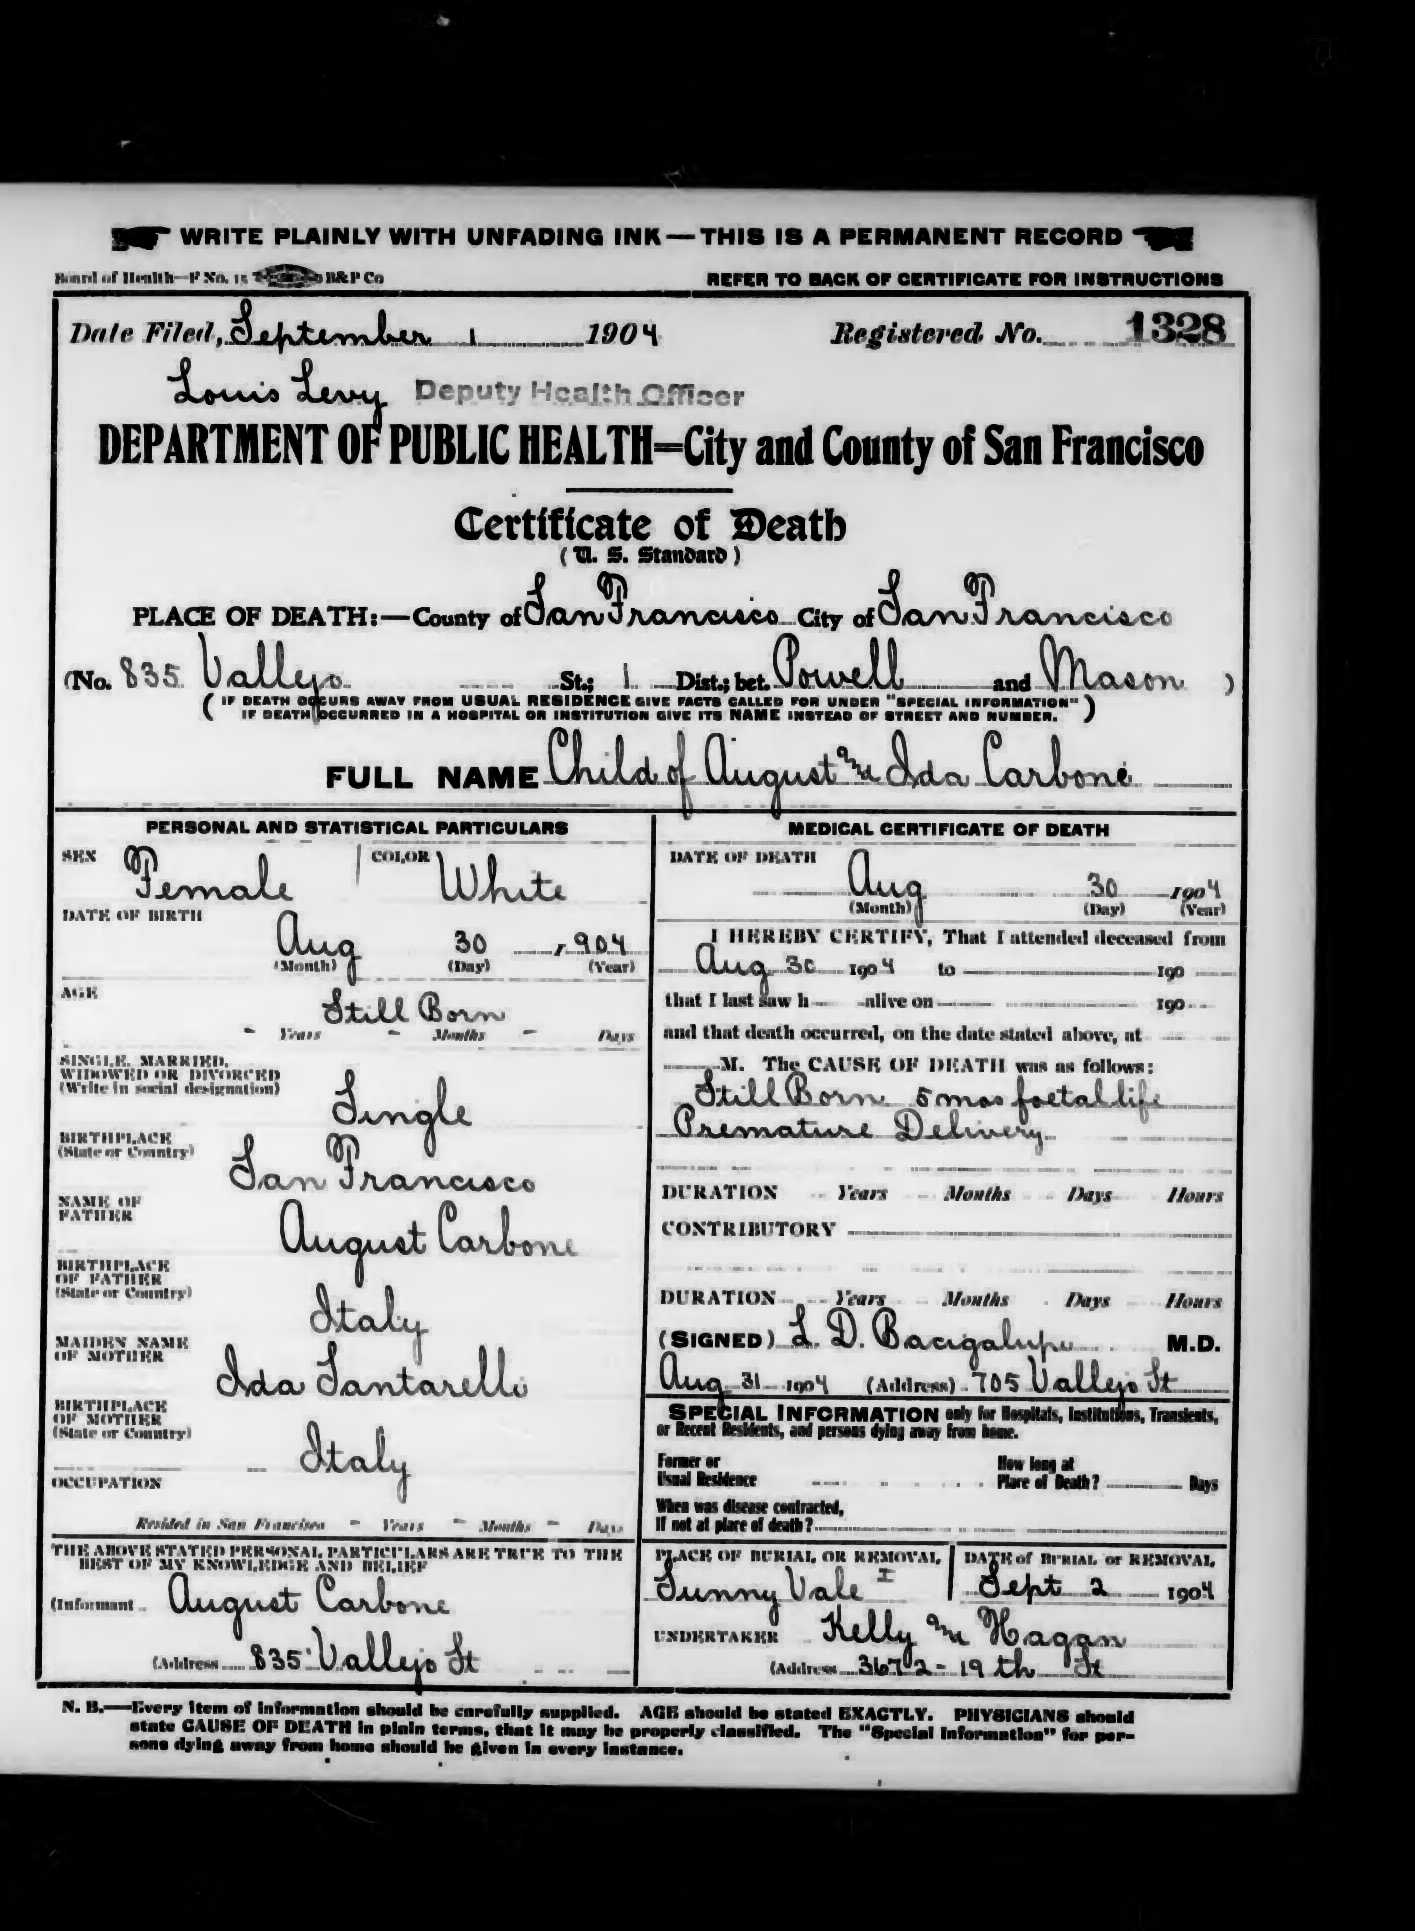 WRITE PLAINLY WITH UNFADING INK—THIS IS A PERMANENT RECORD
Board of Health—F No. 15 B&P Co REFER TO BACK OF CERTIFICATE FOR INSTRUCTIONS
Date Filed, September 1 1904 Registered No. 1328
Louis Levy Deputy Health Officer
DEPARTMENT OF PUBLIC HEALTH=City and County of San Francisco
Certificate of Death
(U. S. Standard)
PLACE OF DEATH:—County of San Francisco City of San Francisco
(No. 835 Vallejo St.; 1 Dist.; bet. Powell and Mason )
( IF DEATH OCCURS AWAY FROM USUAL RESIDENCE GIVE FACTS CALLED FOR UNDER "SPECIAL INFORMATION" )
IF DEATH OCCURRED IN A HOSPITAL OR INSTITUTION GIVE ITS NAME INSTEAD OF STREET AND NUMBER.
FULL NAME Child of August and Ida Carbone
PERSONAL AND STATISTICAL PARTICULARS
SEX Female COLOR White
DATE OF BIRTH
Aug 30 1904
(Month) (Day) (Year)
AGE
Still Born
- Years - Months - Days
SINGLE, MARRIED,
WIDOWED OR DIVORCED
(Write in social designation)
Single
BIRTHPLACE
(State or Country)
San Francisco
NAME OF
FATHER
August Carbone
BIRTHPLACE
OF FATHER
(State or Country)
Italy
MAIDEN NAME
OF MOTHER
Ida Santarelli
BIRTHPLACE
OF MOTHER
(State or Country)
Italy
OCCUPATION
Resided in San Francisco - Years - Months - Days
THE ABOVE STATED PERSONAL PARTICULARS ARE TRUE TO THE
BEST OF MY KNOWLEDGE AND BELIEF
(Informant August Carbone
(Address 835 Vallejo St
MEDICAL CERTIFICATE OF DEATH
DATE OF DEATH
Aug 30 1904
(Month) (Day) (Year)
I HEREBY CERTIFY, That I attended deceased from
Aug 30 1904 to 190
that I last saw h alive on 190
and that death occurred, on the date stated above, at
M. The CAUSE OF DEATH was as follows:
Still Born 5 mos foetal life
Premature Delivery
DURATION Years Months Days Hours
CONTRIBUTORY
DURATION Years Months Days Hours
(SIGNED) L. D. Bacigalupi M.D.
Aug 31 1904 (Address) 705 Vallejo St
SPECIAL INFORMATION only for Hospitals, Institutions, Transients,
or Recent Residents, and persons dying away from home.
Former or
Usual Residence
How long at
Place of Death? Days
When was disease contracted,
If not at place of death?
PLACE OF BURIAL OR REMOVAL
Sunny Vale I
DATE of BURIAL or REMOVAL
Sept 2 1904
UNDERTAKER Kelly and Hagan
(Address 3672-19th St
N. B.—Every item of information should be carefully supplied. AGE should be stated EXACTLY. PHYSICIANS should
state CAUSE OF DEATH in plain terms, that it may be properly classified. The "Special Information" for per-
sons dying away from home should be given in every instance.